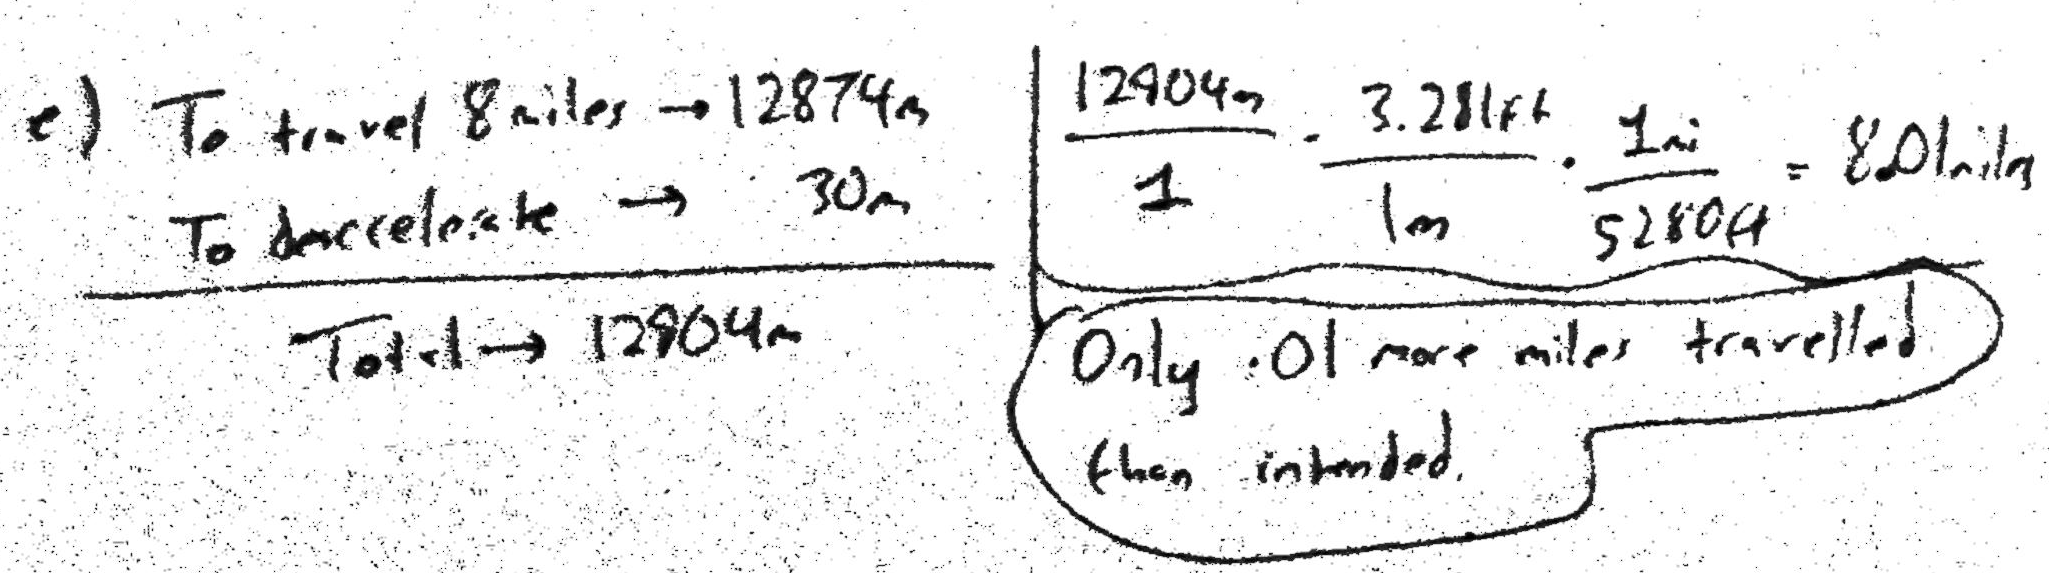 e) To travel 8 miles → 12874m
To deaccelerate → 30m
Total → 12904m
12904m / 1 · 3.281ft / 1m · 1mi / 5280ft = 8.01miles
Only .01 more miles travelled
than intended.